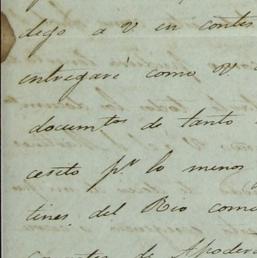 digo a V en contes
entregaré como V.
documtos de tanto
cesito pr lo menos
tines del Rio como
de Apodera